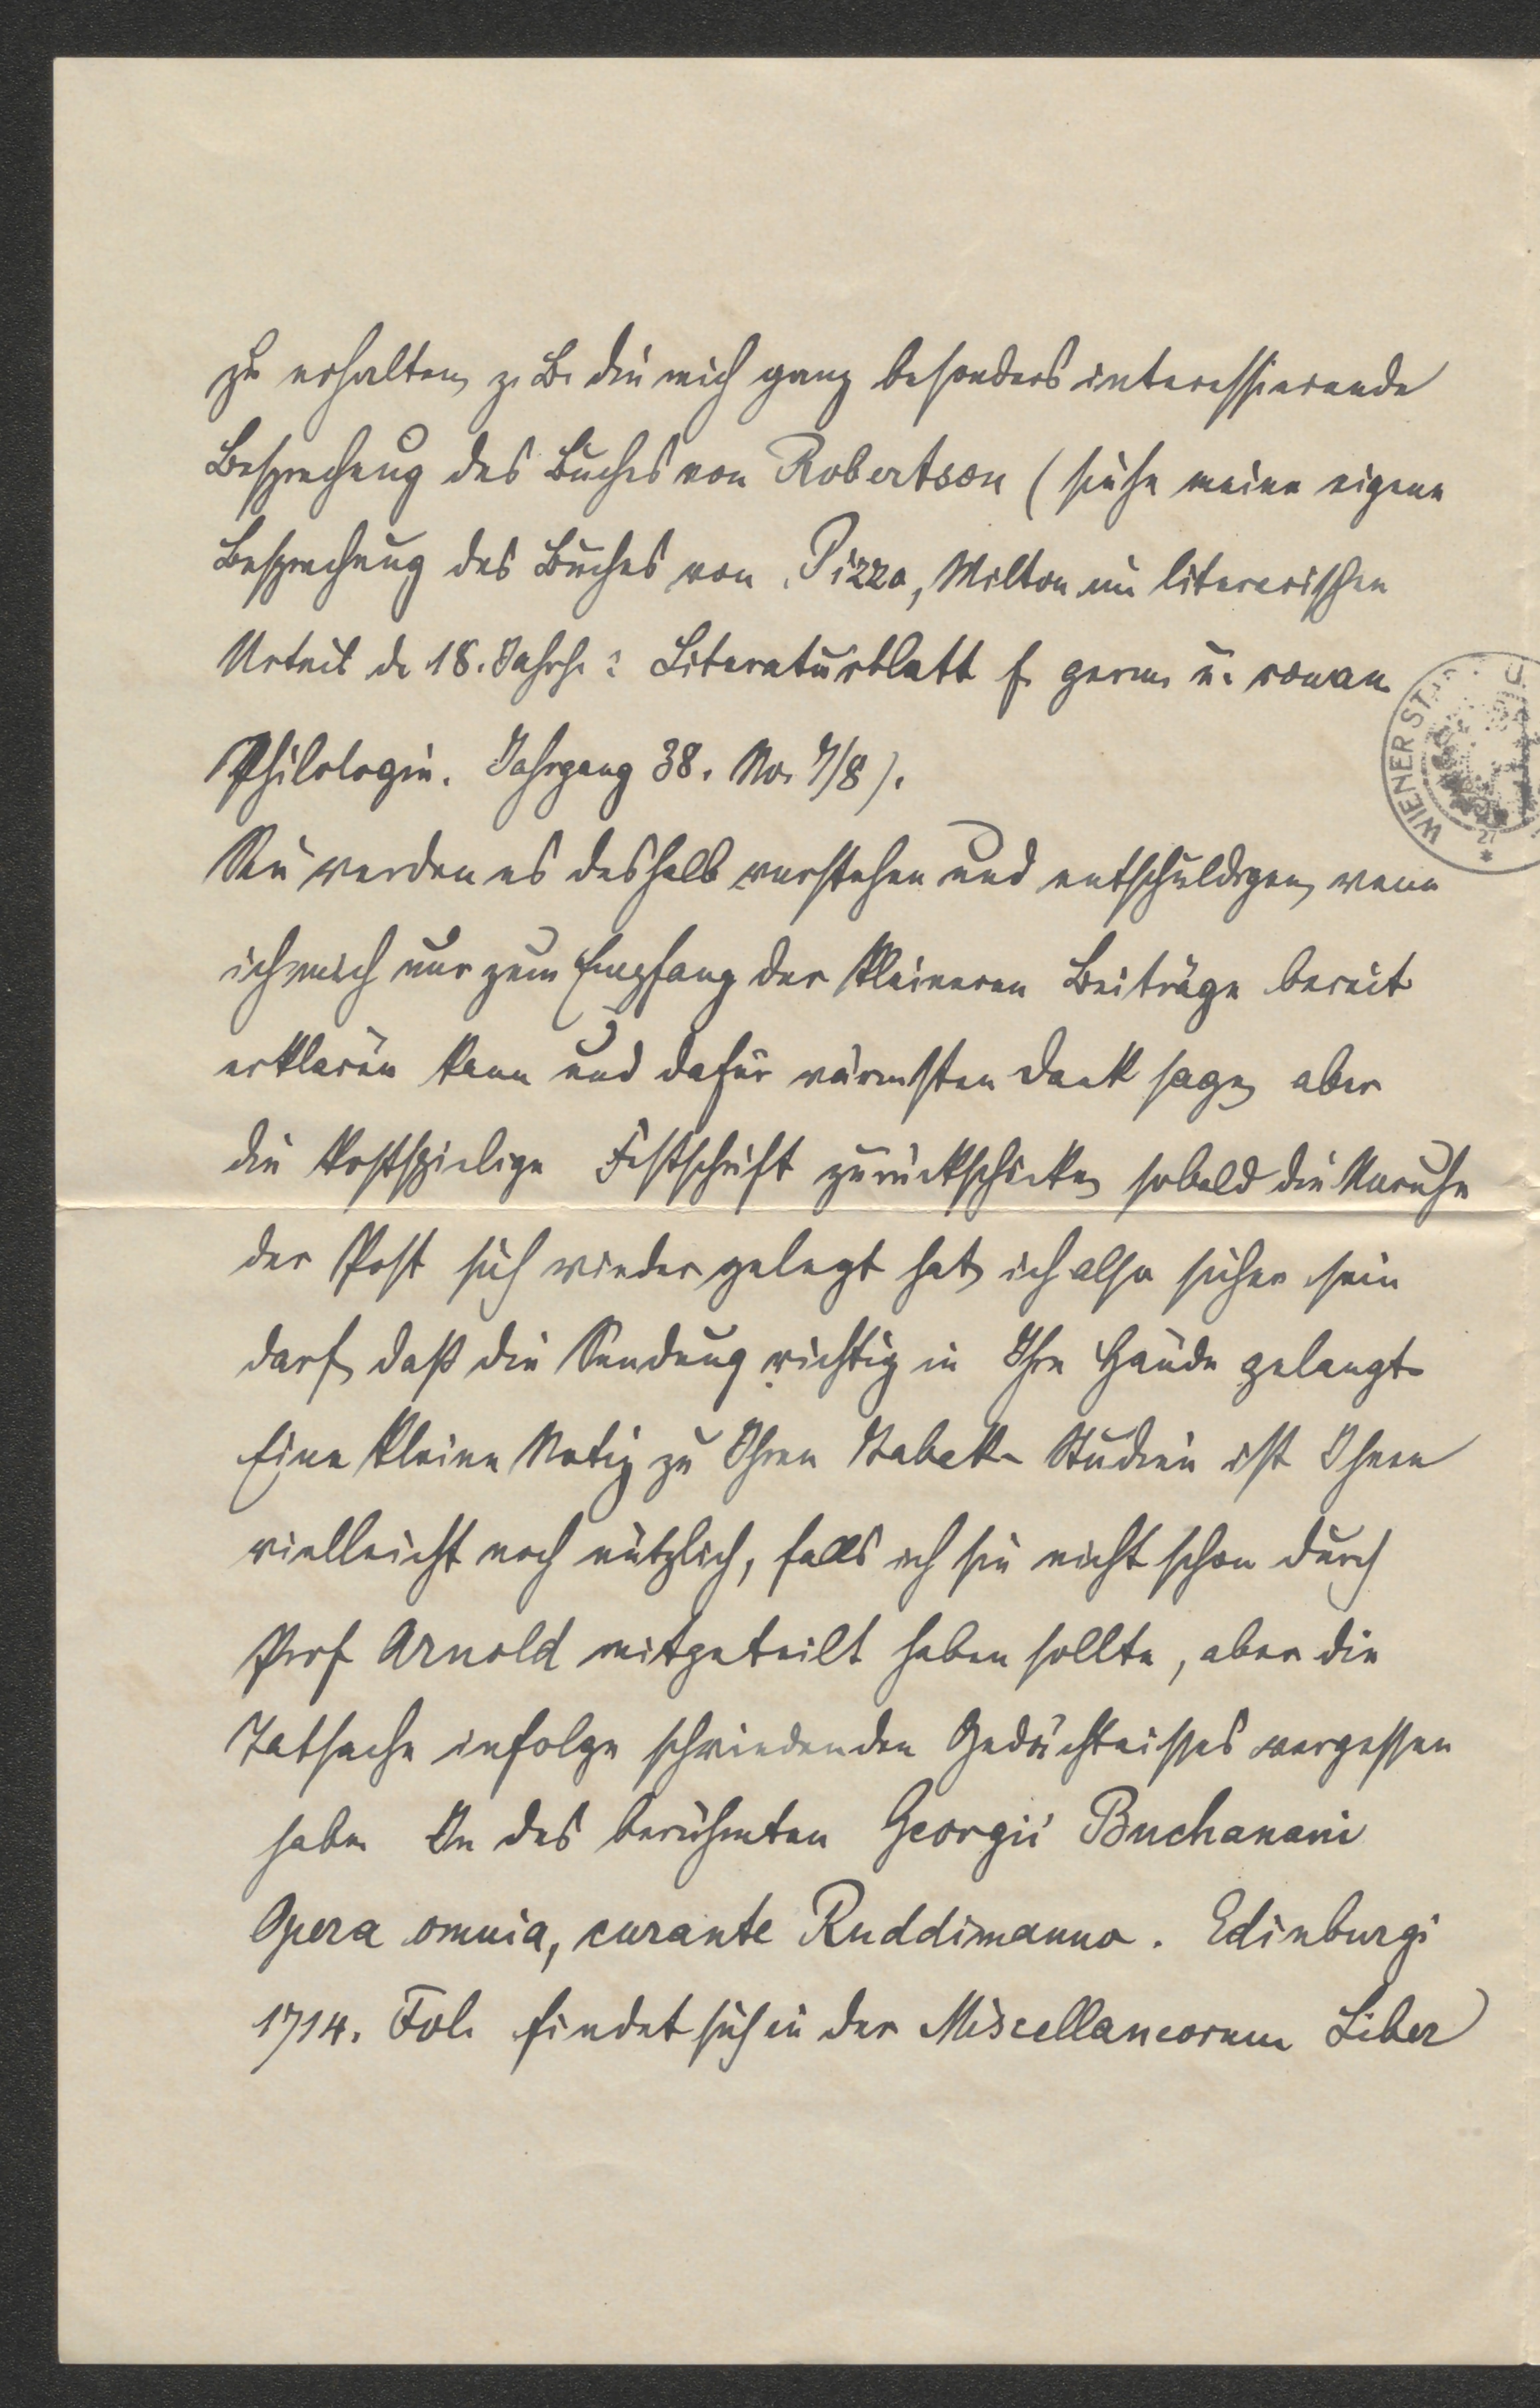 zu erhalten, z. B. die mich ganz besonders interessierende
Besprechung des Buches von Robertson (siehe meine eigene
Besprechung des Buches von Pizzo, Milton im literarischen
Urteil d. 18. Jahrh.: Literaturblatt f. germ. u. roman.
Philologie. Jahrgang 38. No. 7/8).
Sie werden es deshalb verstehen und entschuldigen, wenn
ich mich nur zum Empfang der kleineren Beiträge bereit
erklären kann und dafür wärmsten Dank sage, aber
die kostspielige Festschrift zurückschicke, sobald die Unruhe
der Post sich wieder gelegt hat, ich also sicher sein
darf, daß die Sendung richtig in Ihre Hände gelangt.
Eine kleine Notiz zu Ihren Tabak-Studien ist Ihnen
vielleicht noch nützlich, falls ich sie nicht schon durch
Prof Arnold mitgeteilt haben sollte, aber die
Tatsache infolge schwindenden Gedächtnisses vergessen
habe. In des berühmten Georgii Buchanani
Opera omnia, curante Ruddimanno. Edinburgi
1714. Fol. findet sich in der Miscellaneorum Liber
WIENER ST
27